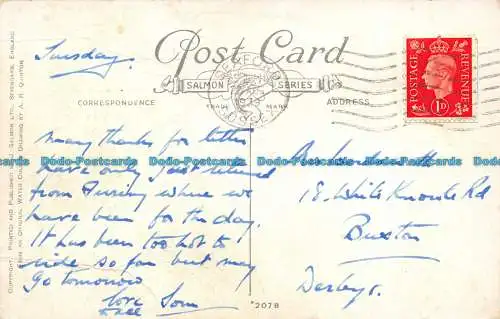 Post Card
SALMON SERIES
TRADE MARK
CORRESPONDENCE
ADDRESS
POSTAGE REVENUE
1D
SEAFORD
SUSSEX
COPYRIGHT. PRINTED AND PUBLISHED BY J. SALMON LTD. SEVENOAKS, ENGLAND
FROM AN ORIGINAL WATER COLOUR DRAWING BY A. R. QUINTON
Tuesday.
Many thanks for letter
have only just returned
from where we
have been for the day.
It has been too hot to
ride so far but may
Go tomorrow
love
18. White Knowle Rd
Buxton
Derbys.
*2078
Dodo-Postcards Dodo-Postcards Dodo-Postcards Dodo-Postcards